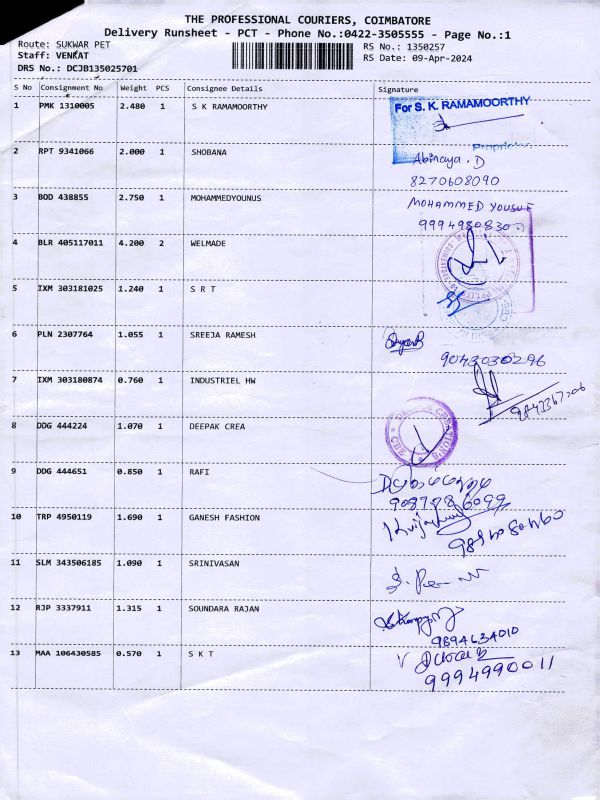 THE PROFESSIONAL COURIERS, COIMBATORE
Delivery Runsheet - PCT - Phone No.:0422-3505555 - Page No.:1
Route: SUKWAR PET
Staff: VENKAT
DRS No.: DCJB135025701
RS No.: 1350257
RS Date: 09-Apr-2024
S No Consignment No Weight PCS Consignee Details Signature
1 PMK 1310005 2.480 1 S K RAMAMOORTHY
For S. K. RAMAMOORTHY
Proprietor
2 RPT 9341066 2.000 1 SHOBANA
Abinaya. D
8270608090
3 BOD 438855 2.750 1 MOHAMMEDYOUNUS
MOHAMMED YOUSUF
9994980830
4 BLR 405117011 4.200 2 WELMADE
5 IXM 303181025 1.240 1 S R T
6 PLN 2307764 1.055 1 SREEJA RAMESH
9043030296
7 IXM 303180874 0.760 1 INDUSTRIEL HW
8 DDG 444224 1.070 1 DEEPAK CREA
9 DDG 444651 0.850 1 RAFI
10 TRP 4950119 1.690 1 GANESH FASHION
11 SLM 343506185 1.090 1 SRINIVASAN
12 RJP 3337911 1.315 1 SOUNDARA RAJAN
9894634010
13 MAA 106430585 0.570 1 S K T
9994990011